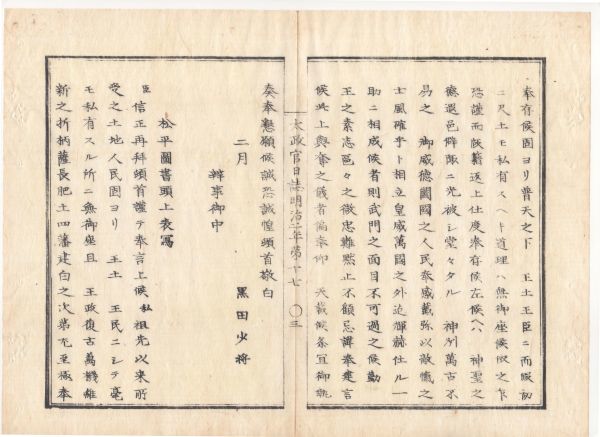 奉存候固ヨリ普天之下　王土王臣ニ而瞬訪
ニ尺土モ私有スヘキ道理ハ無御座候仮之乍
恐謹而版籍返上仕度奉存候左候ヘハ　神聖之
徳遐邑僻陬ニ光被シ堂々タル　神州万古不
易之　御威徳國國之人民奉感戴弥以敵愾之
士風確乎ト相立皇威萬國之外迄御赫仕ル一
助ニ相成候者則武門之面目不可過之候勤
王之素志區々之微忠難黙止不顧忌諱奉建言
候此上與奪之儀者偏奉仰　天裁候条宜御執
太政官日誌明治二年第十七　〇三
奏奉懇願候誠恐誠惶頓首敬白
二月　黒田少将
辨事御中
松平圖書頭上表寫
臣信正再拜頓首謹テ奉言上候私祖先以来所
受之土地人民固ヨリ　王土　王民ニシテ毫
モ私有スル所ニ無御座且　王政復古萬機維
新之折柄薩長肥土四藩建白之次第允至極奉